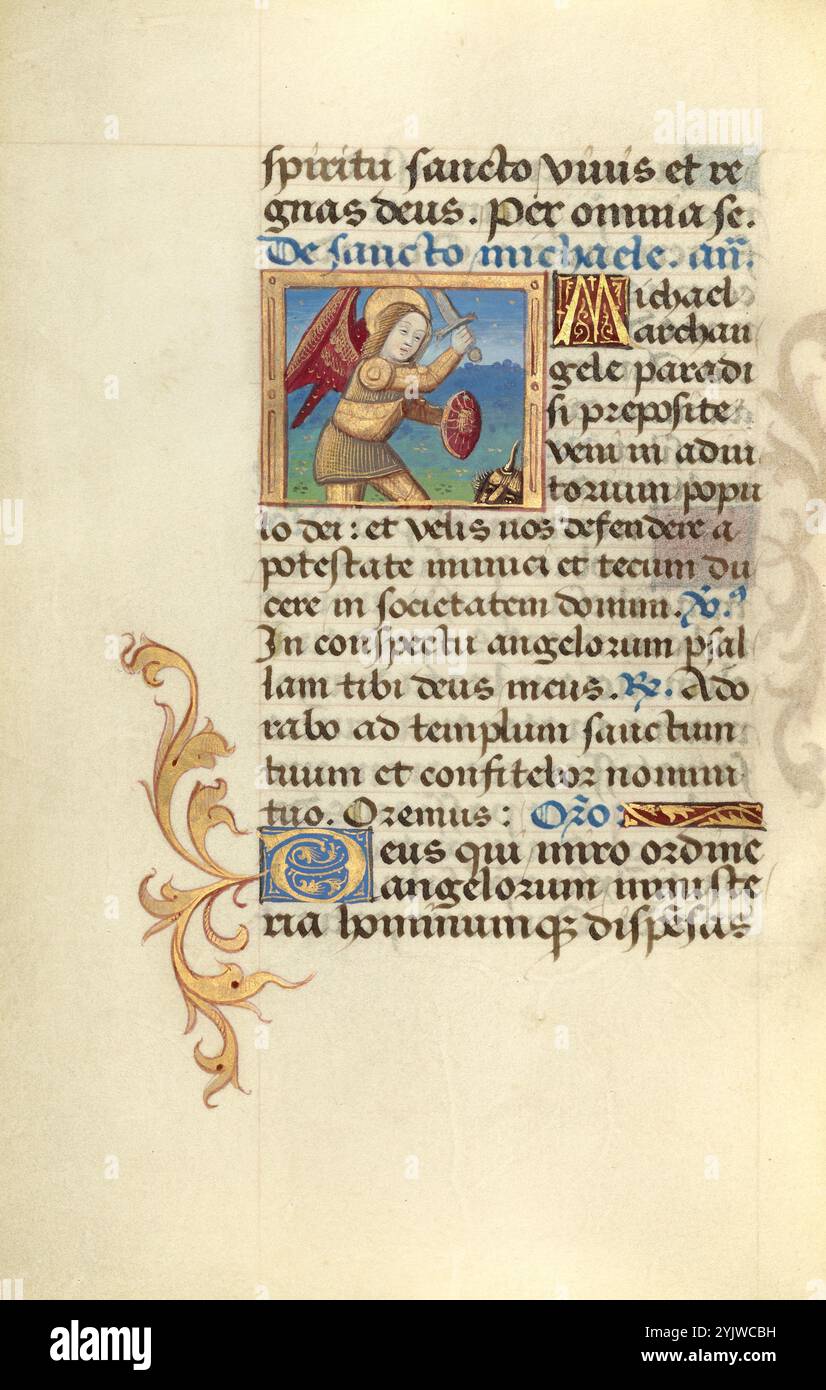 spiritu sancto vivis et re
gnas deus. Per omnia se.
De sancto michaele. añ.
Michael
archan
gele paradi
si preposite
veni in adiu
torium popu
lo dei: et velis nos defendere a
potestate inimici et tecum du
cere in societatem domini. V̊.
In conspectu angelorum psal
lam tibi deus meus. Re. Ado
rabo ad templum sanctum
tuum et confitebor nomini
tuo. Oremus: Orõ
Deus qui miro ordine
angelorum ministe
ria hominumq; dispẽsas
alamy
Image ID: 2YJWCBH
www.alamy.com